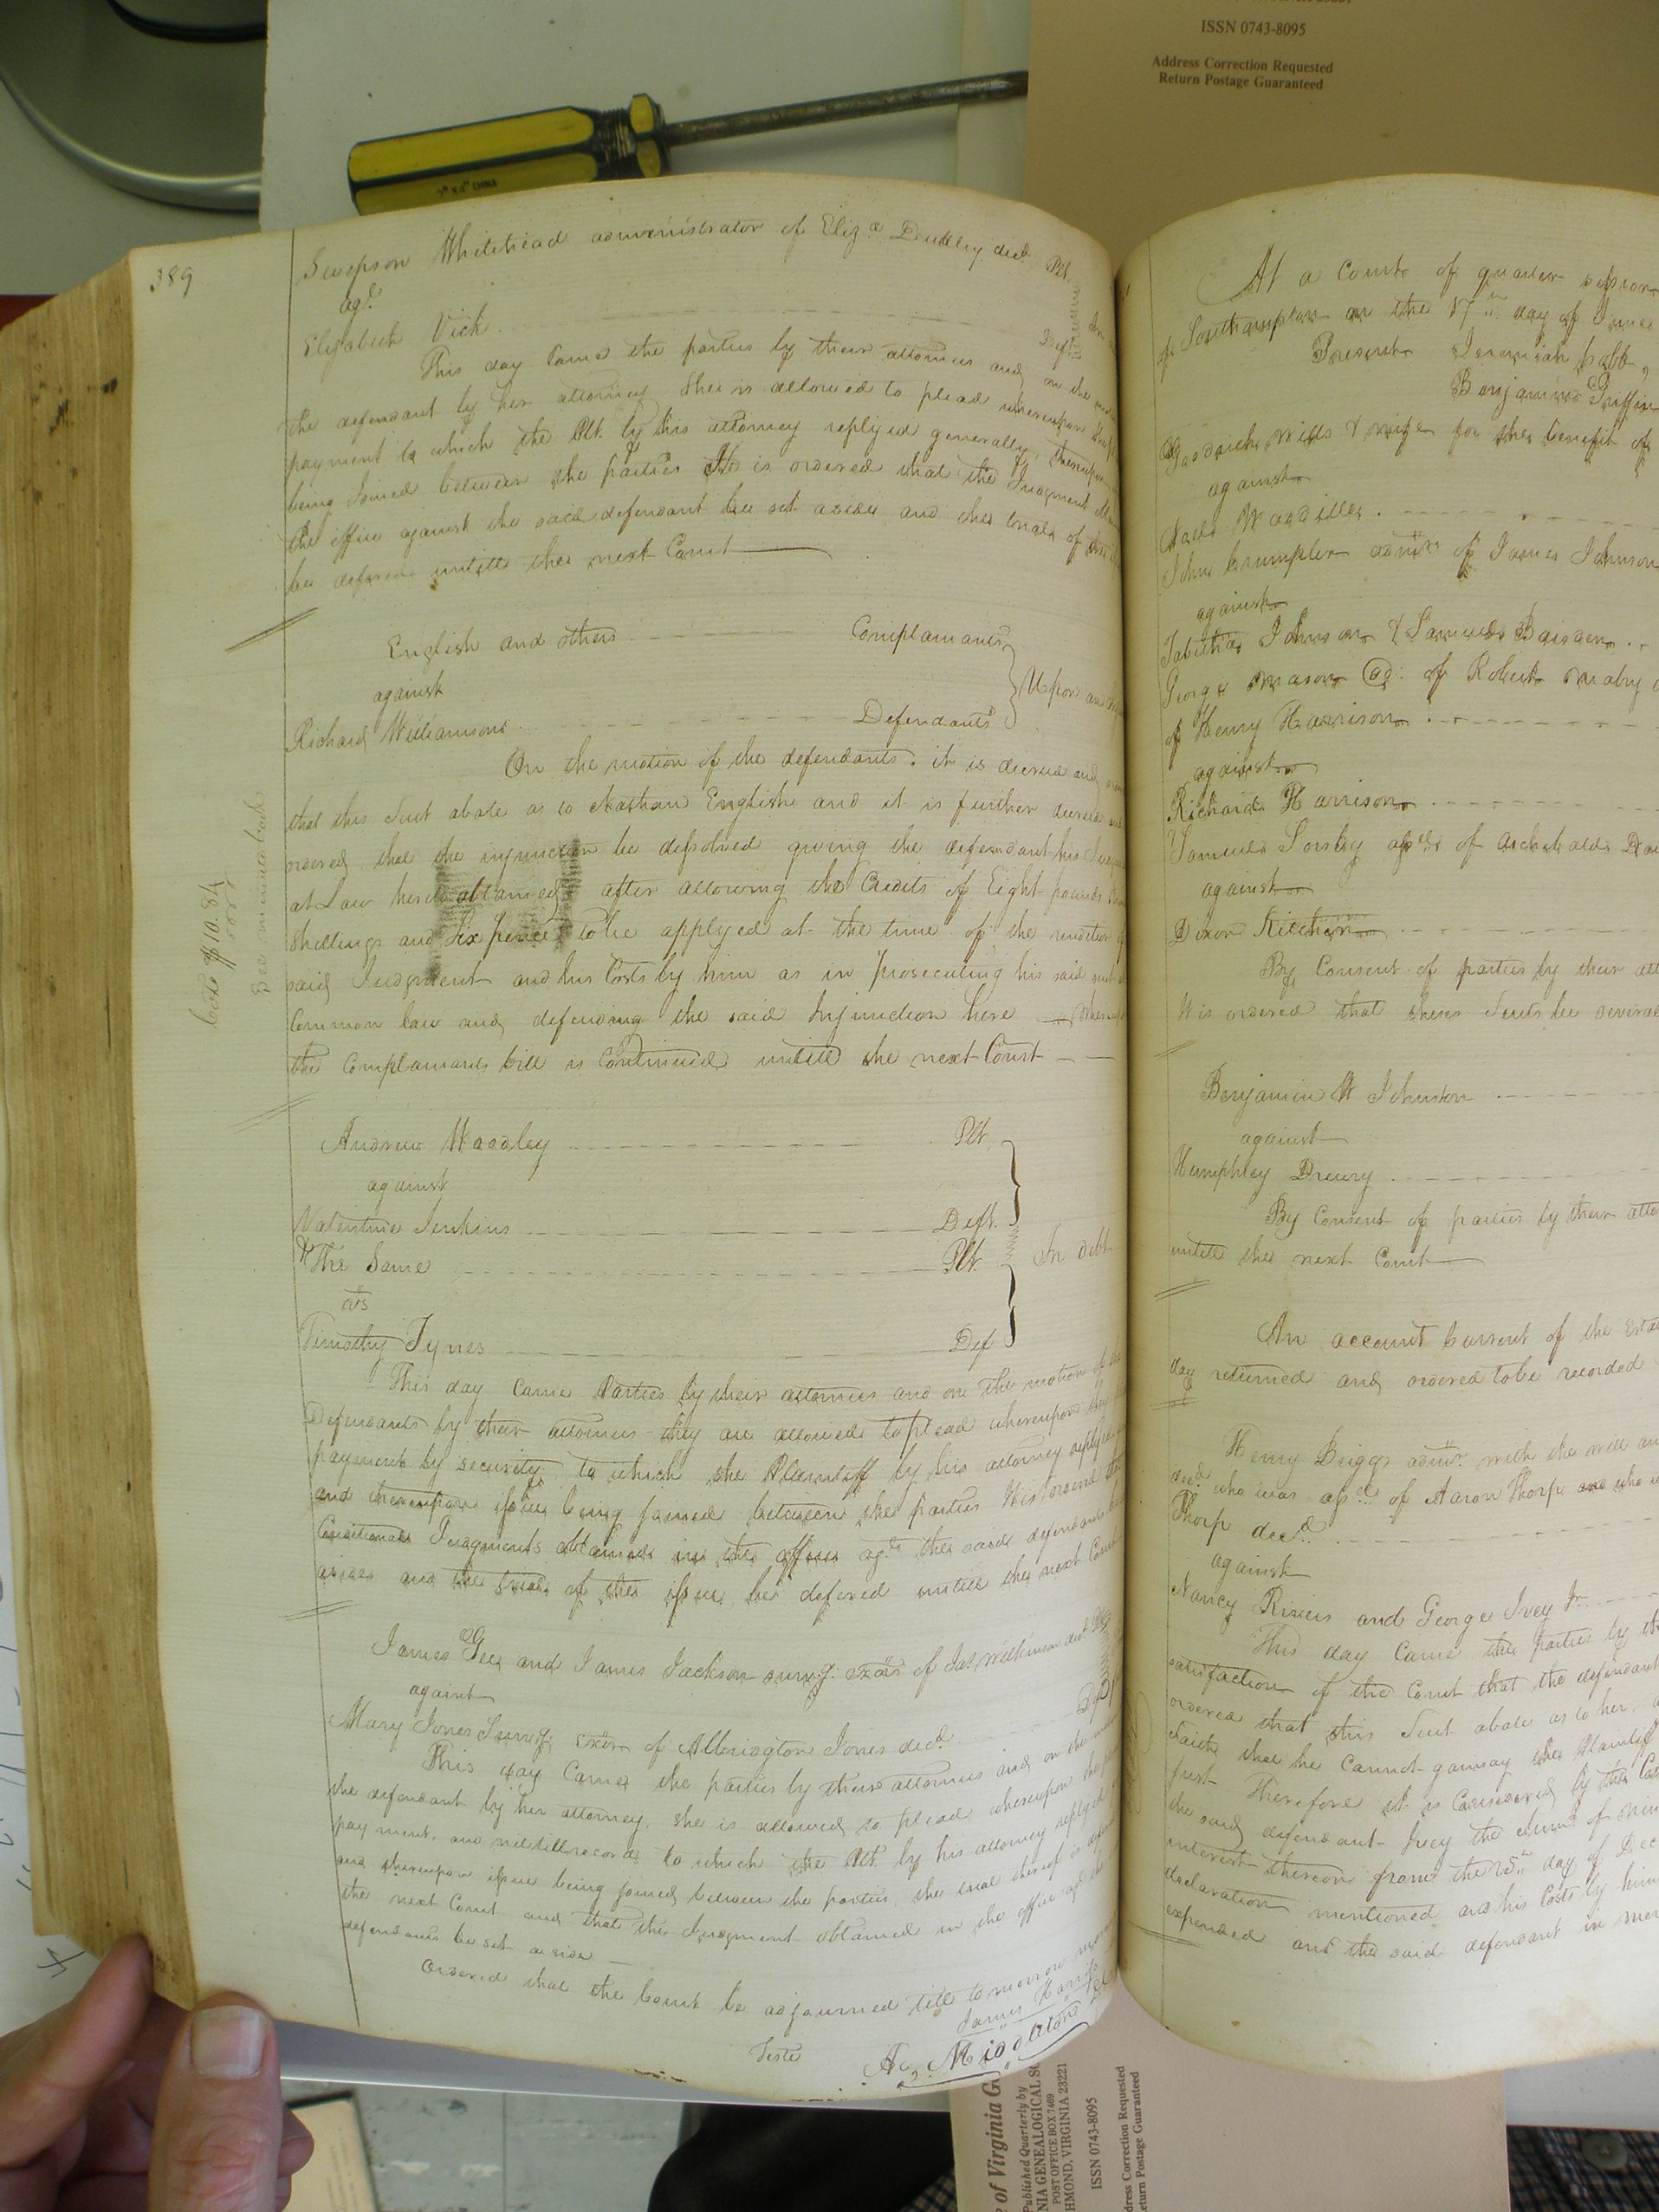 ISSN 0743-8095
Address Correction Requested
Return Postage Guaranteed
CHINA
389
Swepson Whitehead administrator of Eliz.a Dudley decd. Plt.
agt.
Elizabeth Vick Deft
This day Came the parties by their attornies and on the
the defendant by her attorney She is allowed to plead whereupon
payment to which the Plt. by his attorney replyed generally,
being Joined between the parties It is ordered that the Judgment
the office against the said defendant be set aside and the trial of
be defered untill the next Court
English and others Complainants
against
Richard Williamson Defendants
Upon an
On the motion of the defendants. it is decreed and
that this Suit abate as to Nathan English and it is further decreed
ordered that the injunction be desolved giving the defendant his
at Law hereto obtained after allowing the Credits of Eight pounds
Shillings and Six pence to be applyed at the time of the rendition
said Judgment and his Costs by him as in prosecuting his said suit
Common law and defending the said Injunction here
the Complainants bill is Continued untill the next Court
Costs $10.84
See minute book
Andrew Woodley Plt.
against
Valentine Jenkins Deft.
The Same Plt.
vs
Timothy Tynes Def
In debt
This day came Parties by their attornies and on the motion of
Defendants by their attornies they are allowed to plead whereupon
payment by security to which the Plaintiff by his attorney replyed
and thereupon issue being joined between the parties It is ordered
Conditional Judgments obtained in the office agt. the said defendants
aside and the trial of the issue be defered untill the next Court
James Gee and James Jackson surv.g exors of Jas. Wilkinson decd. Plt
against
Mary Jones Surv.g exor of Albridgton Jones decd. Def
This day Came the parties by their attornies and on the
the defendant by her attorney, she is allowed to plead whereupon
payment. and to which the Plt. by his attorney replyed
and thereupon issue being joined between the parties, the trial thereof is
the next Court and that the Judgment obtained in the office agt the
defendants be set aside
Ordered that the Court be adjourned till tomorrow
James Harris
Teste
Middleton
At a Court of quarter session
of Southampton on the 17th day of June
Present Jeremiah Cobb,
Benjamin Griffin
Goodrich Wills & wife for the benefit of
against
John Crumpler admr. of James Johnson
against
Tabitha Johnson & Samuel Brister
George Mason of Robert Mabry
of Henry Harrison
against
Richard Harrison
Samuel of Archibald
against
Dixon Kitchen
By Consent of parties by their
It is ordered that these Suits be
Benjamin W Johnston
against
Humphrey Drewry
By Consent of parties by their
untill the next Court
An account Current of the Esta
day returned and ordered to be recorded
Henry Briggs admr. with the will
decd. who was of Aaron Thorp who
Thorp decd.
against
Nancy Rivers and George Ivey Jr.
This day Came the parties by
satisfaction of the Court that the defendant
ordered that this Suit abate as to her,
saith that he Cannot gainsay the Plaintiff
just Therefore it is Considered by the
the said defendant Ivey the sum of
interest thereon from the day of Dec
declaration mentioned and his Costs by him
expended and the said defendant in mer
of Virginia
Published Quarterly by
NIA GENEALOGICAL
POST OFFICE BOX 7469
HMOND, VIRGINIA 23221
ISSN 0743-8095
dress Correction Requested
eturn Postage Guaranteed